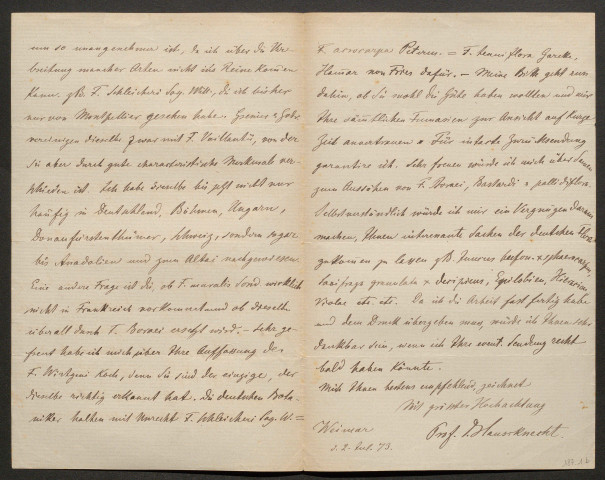 um so unangenehmer ist, da ich über die Ver-
breitung mancher Arten nicht ins Reine kommen
kann. z.B. F. Schleicheri Soy. Will., die ich bisher
nur von Montpellier gesehen habe. Grenier & Godr.
vereinigen dieselbe zwar mit F. Vaillantii, von der
sie aber durch gute characteristische Merkmale ver-
schieden ist. Ich habe dieselbe bis jetzt nicht nur
häufig in Deutschland, Böhmen, Ungarn,
Donaufürstenthümer, Schweiz, sondern sogar
bis Anatolien und zum Altai nachgewiesen.
Eine andere Frage ist die, ob F. muralis Sond. wirklich
nicht in Frankreich vorkommt und ob dieselbe
überall durch F. Boraei ersetzt wird. – Sehr ge-
freut habe ich mich über Ihre Auffassung der
F. Wirtgeni Koch, denn Sie sind der einzige, der
dieselbe richtig erkannt hat. Die deutschen Bota-
niker halten mit Unrecht F. Schleicheri Soy. W. =
F. acrocarpa Peterm. = F. tenuiflora Garcke,
Hammar non Fries dafür. – Meine Bitte geht nun
dahin, ob Sie wohl die Güte haben wollten und mir
Ihre sämtlichen Fumarien zur Ansicht auf kurze
Zeit anvertrauen. Für intacte Zurücksendung
garantire ich. Sehr freuen würde ich mich über
zum Aussehen von F. Boraei, Bastardi & pallidiflora.
Selbstverständlich würde ich mir ein Vergnügen daraus
machen, Ihnen interessante Sachen der deutschen Flora
zukommen zu lassen z.B. Juncus
Saxifraga granulata × decipiens, Epilobien, Hieracien
Violae etc. etc. Da ich die Arbeit fast fertig habe
und dem Druck übergeben muss, würde ich Ihnen sehr
dankbar sein, wenn ich Ihre event. Sendung recht
bald haben könnte.
Mich Ihnen bestens empfehlend, zeichnet
Mit grösster Hochachtung
Weimar Prof. Haussknecht.
d. 2. 73.